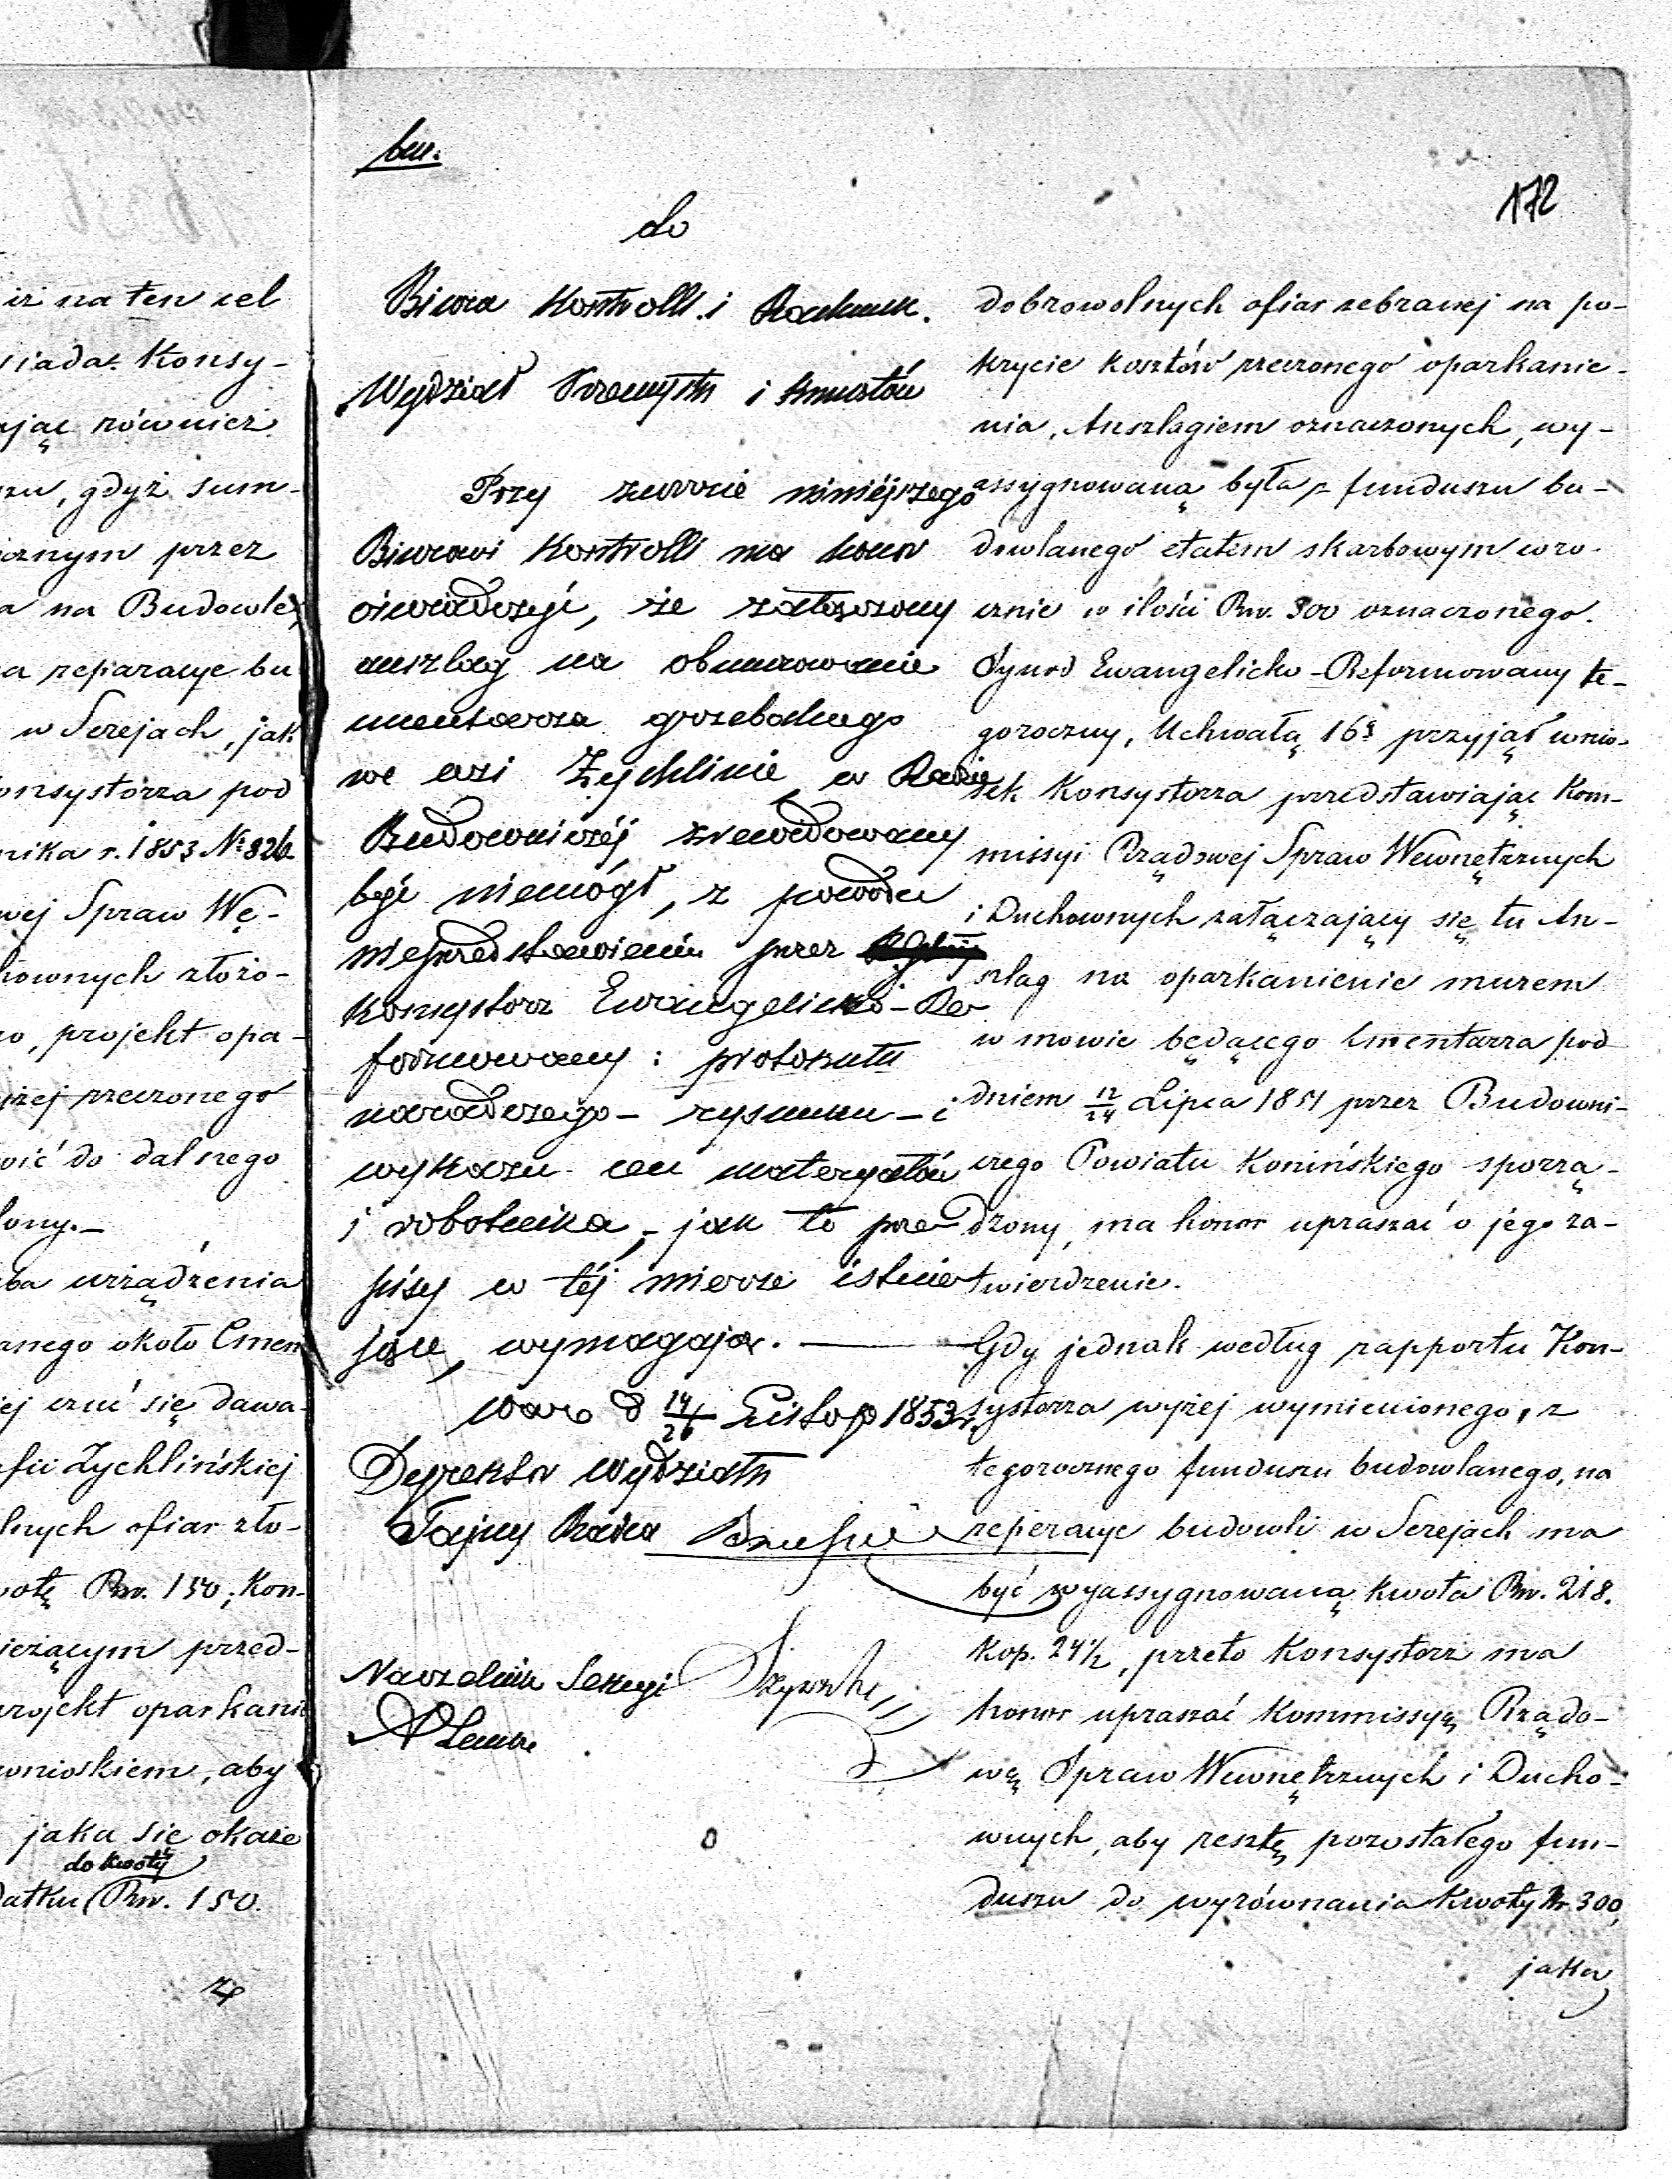 iż na ten cel
siada. Konsy-
ając również
szu, gdyż sum-
icznym przez
a na Budowle,
na reparacye bu
w Serejach, jak
onsystorza pod
nika r. 1853 № 826.
wej Spraw We-
hownych złożo-
no, projekt opa-
yżej rzeczonego
wić do dalszego
lony. _
ba urządzenia
anego około Cmen
ej czuć się dawa-
fii Żychlińskiej
lnych ofiar zło-
wotę Rsr. 150; Kon-
ieżącym przed-
projekt oparkanie
wnioskiem, aby
jaka się okaże
do kwoty
datku Rsr. 150.
z

do
Biura Kontrolli i Rachunk.
Wydział Przemysłu i Kunsztów
Przy zwrocie niniejszego
Biurowi Kontrolli ma honor
oświadczyć, że załączony
anszlag na obmurowanie
cmentarza grzebalnego
we wsi Żychlinie, w Radzie
Budowniczéj zrewidowany
być niemógł, z powodu
nieprzedstawienia przez
Konsystorz Ewangelicko-Re-
formowany: protokułu
naradczego - rysunku - i
wykazu cen materyałów
i robotnika, - jak to prze-
pisy w téj mierze istnie-
jące, wymagają. —
War. d 14/26 Listop 1853 r.
Dyrektor Wydziału
Tajny Radca
Naczelnik Sekcyi

172
dobrowolnych ofiar zebranej na po-
krycie kosztów rzeczonego oparkanie-
nia, Anszlagiem oznaczonych, wy-
assygnowaną była z funduszu bu-
dowlanego etatem skarbowym coro-
cznie w ilości Rsr. 300 oznaczonego.
Synod Ewangelicko-Reformowany te-
goroczny, Uchwałą 16ą przyjął wnio-
sek Konsystorza przedstawiając Kom-
missyi Rządowej Spraw Wewnętrznych
i Duchownych załączający się tu An-
szlag na oparkanienie murem
w mowie będącego Cmentarza pod
dniem 12/24 Lipca 1851 przez Budowni-
czego Powiatu Konińskiego sporzą-
dzony, ma honor upraszać o jego za-
twierdzenie.
Gdy jednak według rapportu Kon-
systorza wyżej wymienionego, z
tegorocznego funduszu budowlanego, na
reperacye budowli w Serejach ma
być wyassygnowaną kwota Rsr. 218.
kop. 24½, przeto Konsystorz ma
honor upraszać Kommissyą Rządo-
wą Spraw Wewnętrznych i Ducho-
wnych, aby resztę pozostałego fun-
duszu do wyrównania kwoty Rsr 300,
jaka